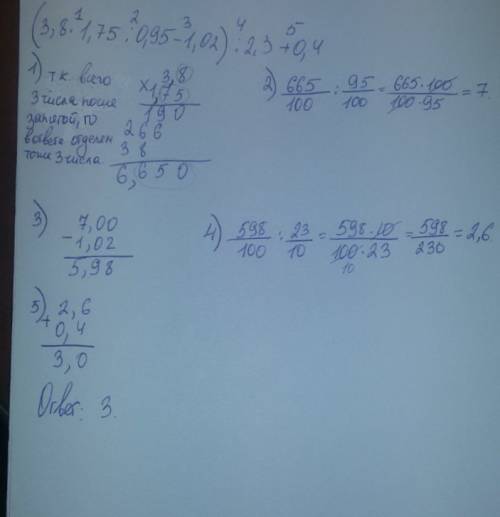 (3,8 · 1,75 : 0,95 - 1,02) : 2,3 + 0,4
1 2 3 4 5
1) т.к. всего
3 числа после
запятой, то
в ответе отделяем
тоже 3 числа
3,8
× 1,75
190
266
38
6,650
2) 665/100 : 95/100 = 665·100/100·95 = 7
3) 7,00
- 1,02
5,98
4) 598/100 : 23/10 = 598·10/100·23 = 598/230 = 2,6
10
5) 2,6
+ 0,4
3,0
Ответ: 3.